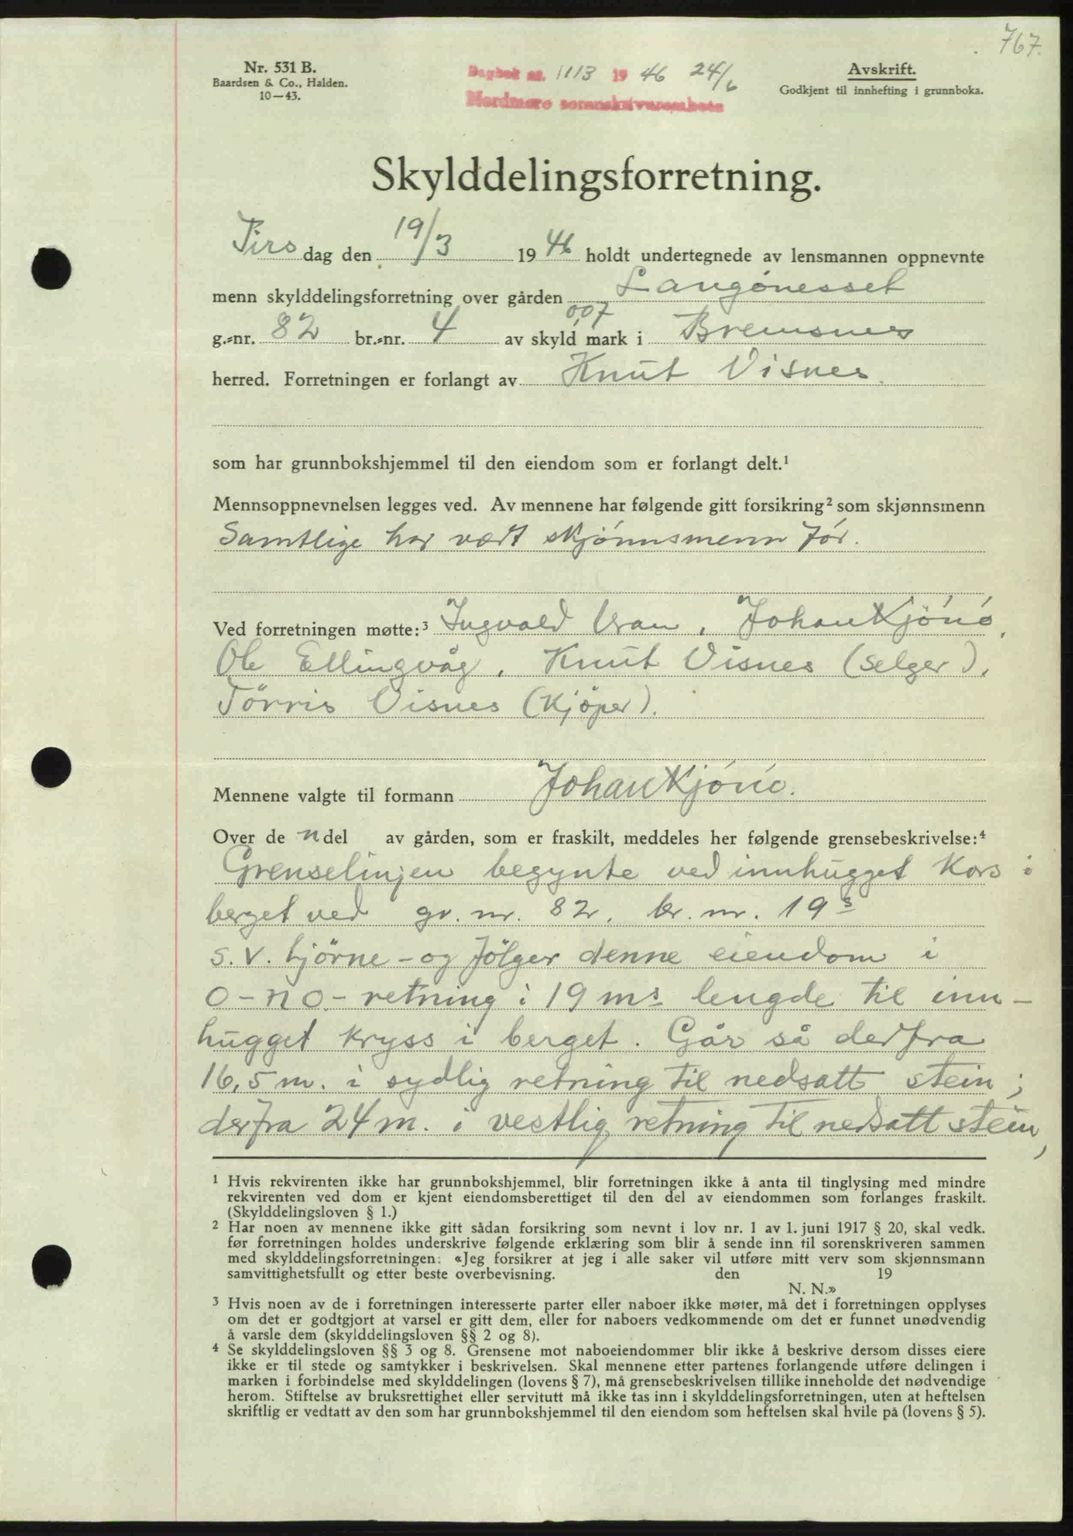 767.
Nr. 531 B.
Baardsen & Co., Halden.
10-43.
Dagbok nr. 1113 1946 24/6
Nordmøre sorenskriverembete
Avskrift.
Godkjent til innhefting i grunnboka.
Skylddelingsforretning.
Tirsdag den 19/3 1946 holdt undertegnede av lensmannen oppnevnte
menn skylddelingsforretning over gården Langönesset
g.-nr. 82 br.-nr. 4 av skyld 0,07 mark i Bremsnes
herred. Forretningen er forlangt av Knut Visnes.
som har grunnbokshjemmel til den eiendom som er forlangt delt.¹
Mennsoppnevnelsen legges ved. Av mennene har følgende gitt forsikring² som skjønnsmenn
Samtlige har vært skjönnsmenn för.
Ved forretningen møtte:³ Ingvald Vran, Johan Kjönö,
Ole Ellingvåg, Knut Visnes (selger),
Törris Visnes (kjöper).
Mennene valgte til formann Johan Kjönö.
Over de n del av gården, som er fraskilt, meddeles her følgende grensebeskrivelse:⁴
Grenselinjen begynte ved innhugget kors i
berget ved gr. nr. 82, br. nr. 19ˢ
s.v. hjörne - og fölger denne eiendom i
o-no-retning i 19 mˢ lengde til inn-
hugget kryss i berget. Går så derfra
16,5 m. i sydlig retning til nedsatt stein;
derfra 24 m. i vestlig retning til nedsatt stein,
¹ Hvis rekvirenten ikke har grunnbokshjemmel, blir forretningen ikke å anta til tinglysing med mindre
rekvirenten ved dom er kjent eiendomsberettiget til den del av eiendommen som forlanges fraskilt.
(Skylddelingsloven § 1.)
² Har noen av mennene ikke gitt sådan forsikring som nevnt i lov nr. 1 av 1. juni 1917 § 20, skal vedk.
før forretningen holdes underskrive følgende erklæring som blir å sende inn til sorenskriveren sammen
med skylddelingsforretningen: «Jeg forsikrer at jeg i alle saker vil utføre mitt verv som skjønnsmann
samvittighetsfullt og etter beste overbevisning. den 19
N. N.»
³ Hvis noen av de i forretningen interesserte parter eller naboer ikke møter, må det i forretningen opplyses
om det er godtgjort at varsel er gitt dem, eller for naboers vedkommende om det er funnet unødvendig
å varsle dem (skylddelingsloven §§ 2 og 8).
⁴ Se skylddelingsloven §§ 3 og 8. Grensene mot naboeiendommer blir ikke å beskrive dersom disses eiere
ikke er til stede og samtykker i beskrivelsen. Skal mennene etter partenes forlangende utføre delingen i
marken i forbindelse med skylddelingen (lovens § 7), må grensebeskrivelsen tillike inneholde det nødvendige
herom. Stiftelse av bruksrettighet eller servitutt må ikke tas inn i skylddelingsforretningen, uten at heftelsen
skriftlig er vedtatt av den som har grunnbokshjemmel til den eiendom som heftelsen skal hvile på (lovens § 5).